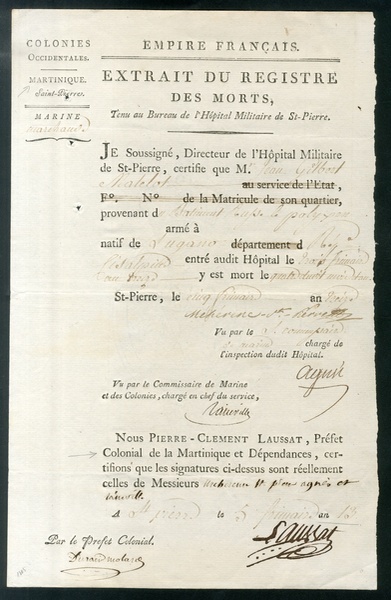 COLONIES
OCCIDENTALES.
MARTINIQUE.
Saint-Pierre.
MARINE
marchande
EMPIRE FRANÇAIS.
EXTRAIT DU REGISTRE
DES MORTS,
Tenu au Bureau de l'Hôpital Militaire de St-Pierre.
JE Soussigné, Directeur de l'Hôpital Militaire
de St-Pierre, certifie que M. Jean Gilbert
Matelot au service de l'Etat,
Fo. No de la Matricule de son quartier,
provenant du Batiment
armé à
natif de Lugano département d
entré audit Hôpital le frimaire
an treize y est mort le
St-Pierre, le cinq frimaire an treize
Vu par le
de marine chargé de
l'inspection dudit Hôpital.
Vu par le Commissaire de Marine
et des Colonies, chargé en chef du service,
NOUS PIERRE-CLEMENT LAUSSAT, Préfet
Colonial de la Martinique et Dépendances, cer-
tifions que les signatures ci-dessus sont réellement
celles de Messieurs et
A St pierre le 5 frimaire an 13
Par le Préfet Colonial.
Laussat